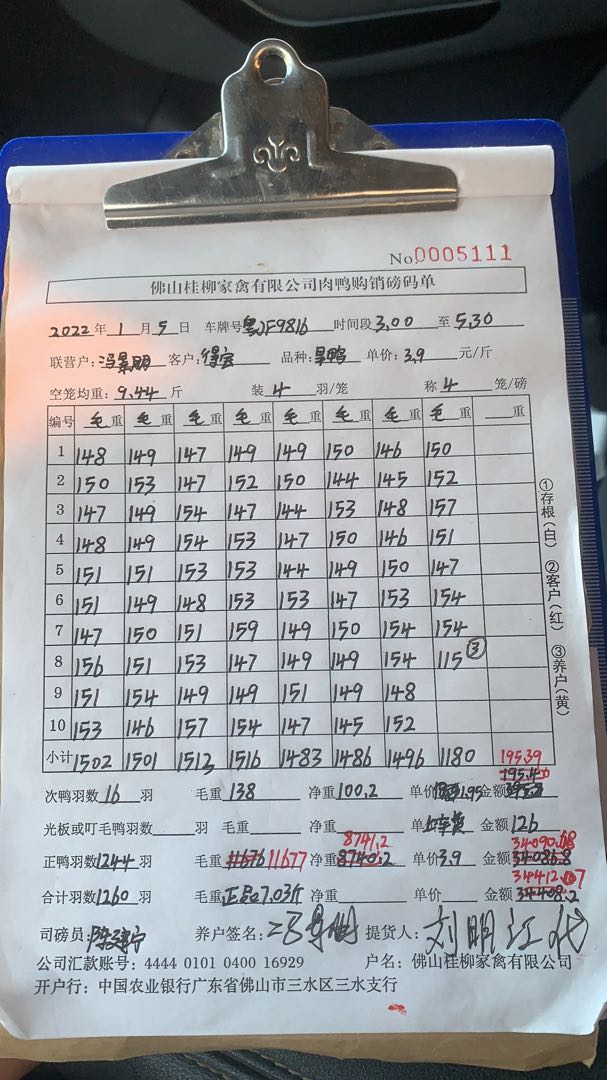 No.0005111
佛山桂柳家禽有限公司肉鸭购销磅码单
2022年1月5日 车牌号粤JF9816 时间段3.00至5.30
联营户:冯景明 客户:得宝 品种:旱鸭 单价:3.9元/斤
空笼均重:9.44斤 装4羽/笼 称4笼/磅
编号 毛重 毛重 毛重 毛重 毛重 毛重 毛重 毛重 重
1 148 149 147 149 149 150 146 150
2 150 153 147 152 150 144 145 152
3 147 149 154 147 144 153 148 157
4 148 149 154 153 147 150 146 151
5 151 151 153 153 144 149 150 147
6 151 149 148 153 153 147 153 154
7 147 150 151 159 149 150 154 154
8 156 151 153 147 149 149 154 115 ③
9 151 154 149 149 151 149 148
10 153 146 157 154 147 145 152
小计 1502 1501 1513 1516 1483 1486 1496 1180 195.39
次鸭羽数16羽 毛重138 净重100.2 单价1.95 金额 195.4
光板或叮毛鸭羽数 羽 毛重 净重 单 金额126
正鸭羽数1244羽 毛重11676 11677 净重8740.2 8741.2 单价3.9 金额34086.8 34090.68
合计羽数1260羽 毛重正品7.03斤 净重 单价 金额34408.2 34412.07
司磅员: 养户签名: 提货人:刘明江代
公司汇款账号:4444 0101 0400 16929 户名:佛山桂柳家禽有限公司
开户行:中国农业银行广东省佛山市三水区三水支行
①存根(白) ②客户(红) ③养户(黄)